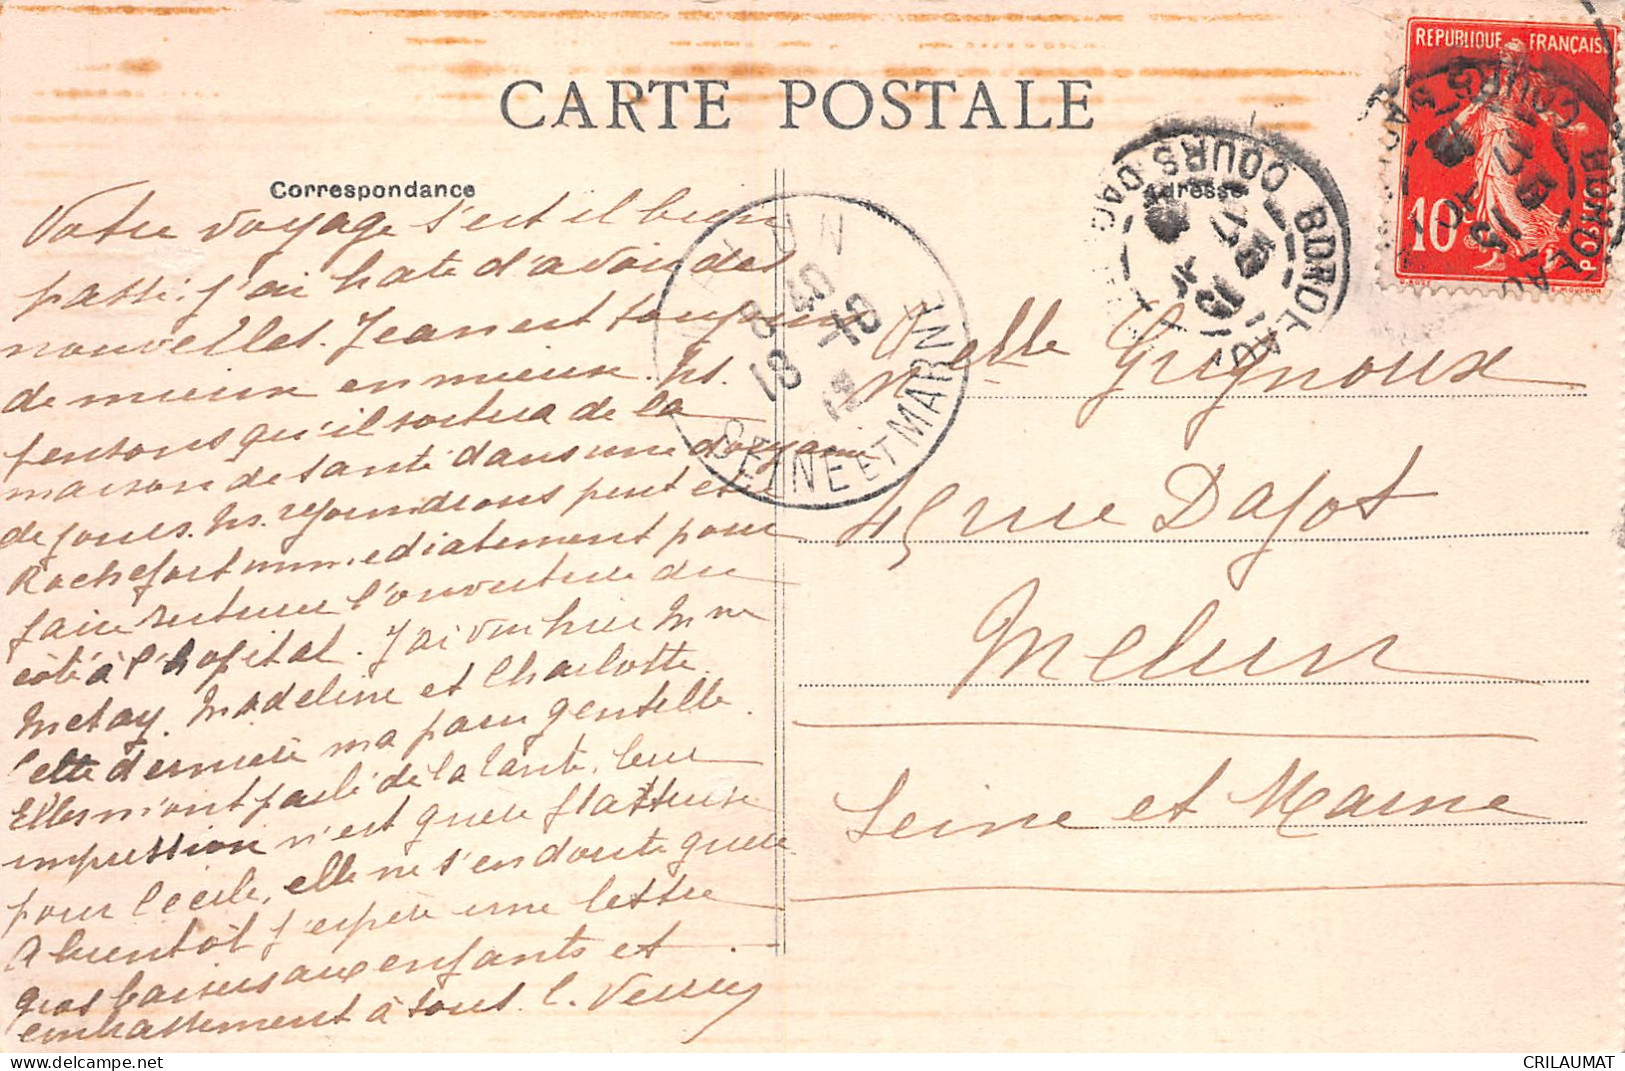 CARTE POSTALE
Correspondance
Adresse
REPUBLIQUE FRANÇAISE
10
BORDEAUX
COURS D'AC
8 40
18 -10
SEINE ET MARNE
Votre voyage s'est il bien
passé. J'ai hate d'avoir des
nouvelles. Jean est toujours
de mieux en mieux. Ns.
pensons qu'il sortira de la
maison de santé dans une dizaine
de jours. Ns. rejoindrons peut etre
Rochefort immédiatement pour
faire l'ouverture du
côté à l'hopital. J'ai vu hier Mme
Metay. Madeline et Charlotte.
Cette dernière m'a paru gentille.
Elles m'ont parlé de la tante, leur
impression n'est guere flatteuse
pour Cécile, elle ne s'en doute guere
A bientôt j'espère une lettre
gros baisers aux enfants et
embrassement à tous. C.
Melle Grignoux
45 rue Dajot
Melun
Seine et Marne
CRILAUMAT